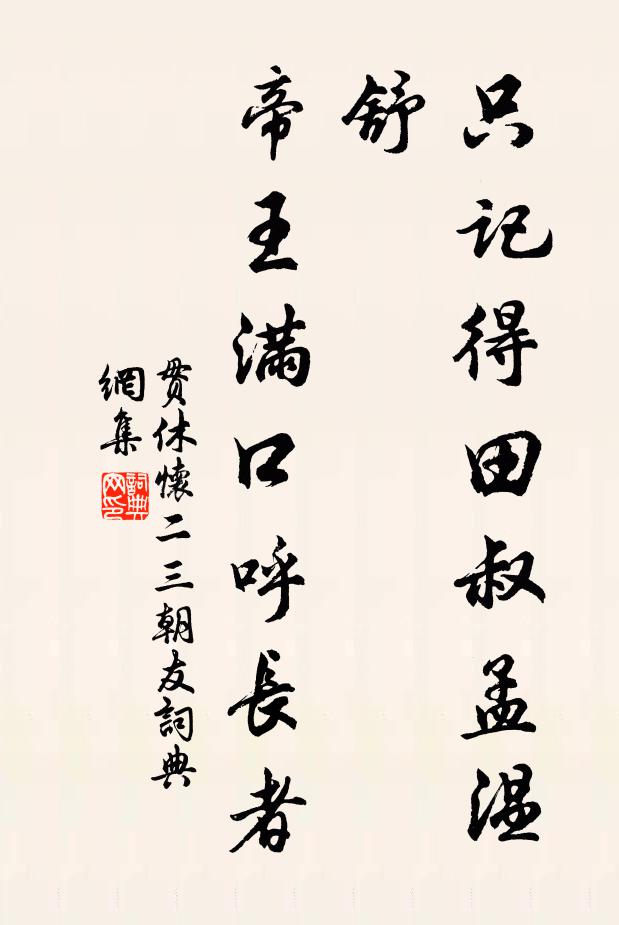 只记得田叔孟温
舒
帝王满口呼長者
贯休懷二三朝友詞典
網集
詞典
网印